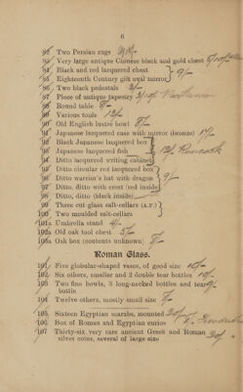 6
82 Two Persian rugs
83 Very large antique Chinese black and gold chest
84 Black and red lacquered chest
85 Eighteenth Century gilt oval mirror
86 Two black pedestals
87 Piece of antique tapestry
88 Round table
89 Various tools 12/-
90 Old English bustο head
91 Japanese lacquered case with mirror (bronze) 17/-
92 Black Japanese lacquered box
93 Japanese lacquered fish
94 Ditto lacquered writing cabinet
95 Ditto circular red lacquered box
96 Ditto warrior's hat with dragon
97 Ditto, ditto with crest (red inside)
98 Ditto, ditto (black inside)
99 Three cut glass salt-cellars (A.F.)
100 Two moulded salt-cellars
101a Umbrella stand
102a Old oak tool chest 5/-
103a Oak box (contents unknown)
Roman Glass.
101 Five globular-shaped vases, of good size 10/-
102 Six others, smaller and 2 double tear bottles 10/-
103 Two fine bowls, 3 long-necked bottles and tear
bottle
104 Twelve others, mostly small size
105 Sixteen Egyptian scarabs, mounted
106 Box of Roman and Egyptian curios
107 Thirty-six very rare ancient Greek and Roman
silver coins, several of large size